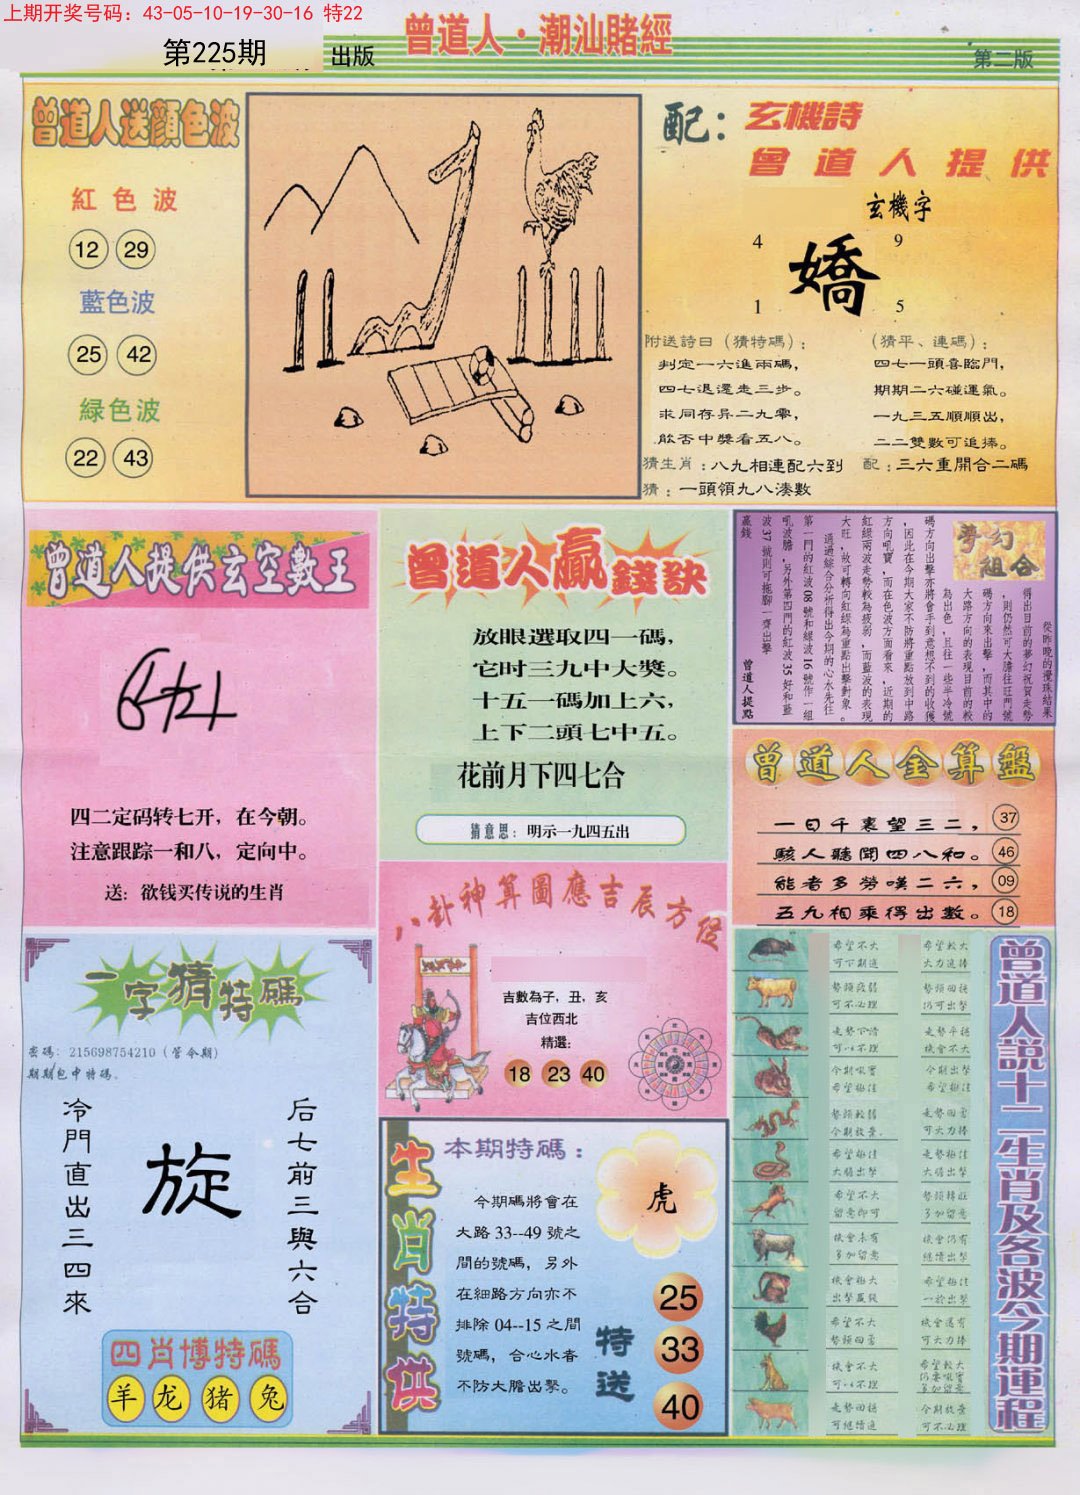 上期开奖号码：43-05-10-19-30-16 特22
第225期
出版
曾道人·潮汕賭經
第二版
曾道人送顏色波
紅色波
12 29
藍色波
25 42
緑色波
22 43
配：玄機詩
曾道人提供
玄機字
4 9
嬌
1 5
附送詩曰（猜特碼）：
判定一六進兩碼，
四七退還走三步。
求同存异二九零，
能否中獎看五八。
（猜平、連碼）：
四七一頭喜臨門，
期期二六碰運氣。
一九三五順順出，
二二雙數可追捧。
猜生肖：八九相連配六到
配：三六重開合二碼
猜：一頭領九八湊數
曾道人提供玄空數王
四二定码转七开，在今朝。
注意跟踪一和八，定向中。
送：欲钱买传说的生肖
曾道人贏錢訣
放眼選取四一碼，
它时三九中大獎。
十五一碼加上六，
上下二頭七中五。
花前月下四七合
猜意思：明示一九四五出
夢幻組合
從昨晚的攪珠結果
得出目前的夢幻祝賀走勢
，則仍然可大膽往旺門號
碼方向來出擊，而其中的
大路方向的表現目前的較
為出色，且往一些半冷號
碼方向出擊亦將會手到意想不到的收獲
，因此在今期大家不防將重點放到中路
方向吼寶，而在色波方面看來，近期的
紅綠兩波走勢較為疲弱，而藍波的表現
大旺，故可轉向紅綠為重點出擊對象。
通過綜合分析得出今期的心水先往
第一門的紅波08號和綠波16號作一組
吼波膽，另外第四門的紅波35好和藍
波37號則可拖腳一齊出擊
贏錢
曾道人提點
曾道人金算盤
一日千裏望三二，37
駭人聽聞四八和。46
能者多勞嘆二六，09
五九相乘得出數。18
八卦神算圖應吉辰方位
吉數為子，丑，亥
吉位西北
精選：
18 23 40
一字猜特碼
密碼：215698754210（管今期）
期期包中特碼。
冷門直出三四來
旋
后七前三與六合
四肖博特碼
羊 龙 猪 兔
生肖特供
本期特碼：
今期碼將會在
大路33--49號之
間的號碼，另外
在細路方向亦不
排除04--15之間
號碼，合心水春
不防大膽出擊。
虎
特送
25
33
40
曾道人說十二生肖及各波今期運程
希望不大
可下期追
希望較大
大力追捧
勢頭疲弱
可不必理
勢頭回揚
仍可出擊
走勢下滑
可以不理
走勢平穩
機會不大
今期吼寶
希望極佳
今期出擊
希望極佳
勢頭較弱
今期放棄
走勢回勇
可大力捧
希望極佳
大膽出擊
走勢極佳
大膽出擊
希望不大
留意即可
勢頭轉旺
多加留意
機會未有
多加留意
機會仍有
繼續出擊
機會極大
希望極佳
一於出擊
希望不大
勢頭回勇
機會還有
可大力捧
機會不大
可以不理
希望較大
仍要吼實
多加留意
走勢回穩
可繼續追
今期放棄
可不必理